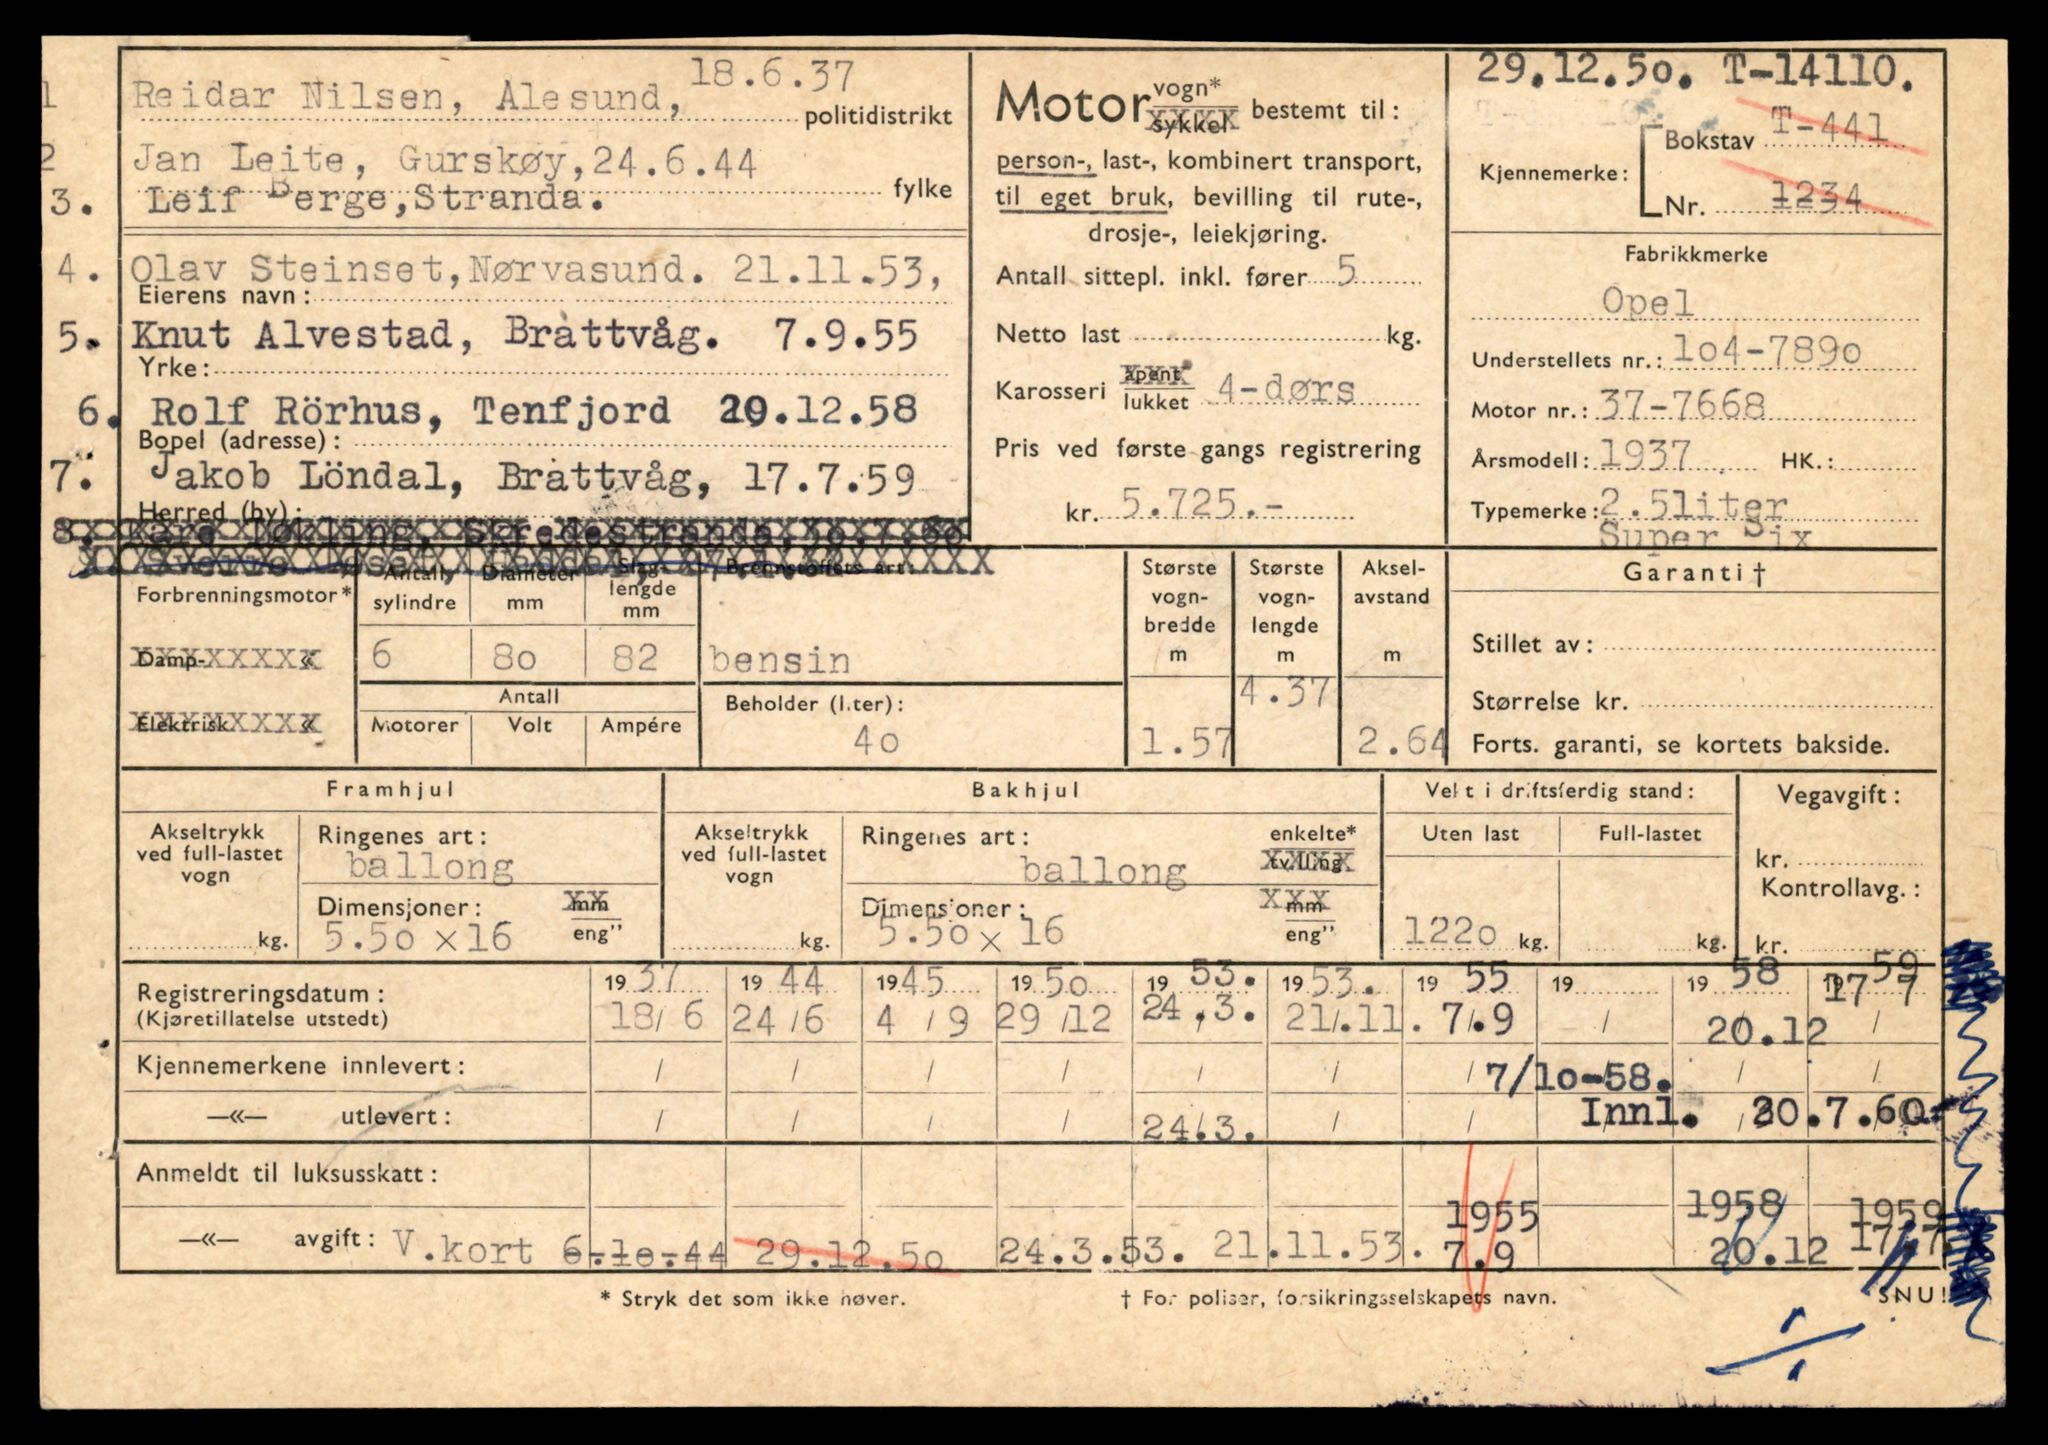 1 Reidar Nilsen, Alesund, 18.6.37
politidistrikt
2 Jan Leite, Gurskøy, 24.6.44
fylke
3. Leif Berge, Stranda.
4. Olav Steinset, Nørvasund. 21.11.53,
Eierens navn:
5. Knut Alvestad, Brattvåg. 7.9.55
Yrke:
6. Rolf Rörhus, Tenfjord 20.12.58
Bopel (adresse):
7. Jakob Löndal, Brattvåg, 17.7.59
Herred (by):
8.
Motor vogn* sykkel bestemt til:
person-, last-, kombinert transport,
til eget bruk, bevilling til rute-,
drosje-, leiekjøring.
Antall sittepl. inkl. fører 5
Netto last kg.
Karosseri åpent lukket 4-dørs
Pris ved første gangs registrering
kr. 5.725.-
29.12.50. T-14110.
Kjennemerke: Bokstav T-441
Nr. 1234
Fabrikkmerke
Opel
Understellets nr.: 104-7890
Motor nr.: 37-7668
Årsmodell: 1937 HK.:
Typemerke: 2.5liter
Super Six
Forbrenningsmotor*
Damp- «
Elektrisk «
Antall sylindre
Diameter mm
Slag-lengde mm
Brennstoffets art:
6 80 82 bensin
Antall
Motorer Volt Ampére
Beholder (liter):
40
Største vogn-bredde m
1.57
Største vogn-lengde m
4.37
Aksel-avstand m
2.64
Garanti †
Stillet av:
Størrelse kr.
Forts. garanti, se kortets bakside.
Framhjul
Akseltrykk ved full-lastet vogn
kg.
Ringenes art:
ballong
Dimensjoner: mm eng"
5.50 x 16
Bakhjul
Akseltrykk ved full-lastet vogn
kg.
Ringenes art: enkelte* tvilling
ballong
Dimensjoner: mm eng"
5.50 x 16
Vekt i driftsferdig stand:
Uten last Full-lastet
1220 kg. kg.
Vegavgift:
kr.
Kontrollavg.:
kr.
Registreringsdatum: 1937 1944 1945 1950 1953. 1953. 1955 19 1958 1959
(Kjøretillatelse utstedt) 18/6 24/6 4/9 29/12 24.3. 21.11. 7.9 / 20.12 17 7
Kjennemerkene innlevert: 7/10-58.
—«— utlevert: 24.3. Innl. 20.7.60.
Anmeldt til luksusskatt: 1955 1958 1959
—«— avgift: V.kort 6.10.44 29.12.50 24.3.53. 21.11.53. 7.9 20.12 17.7
* Stryk det som ikke høver.
† For poliser, forsikringsselskapets navn.
SNU!